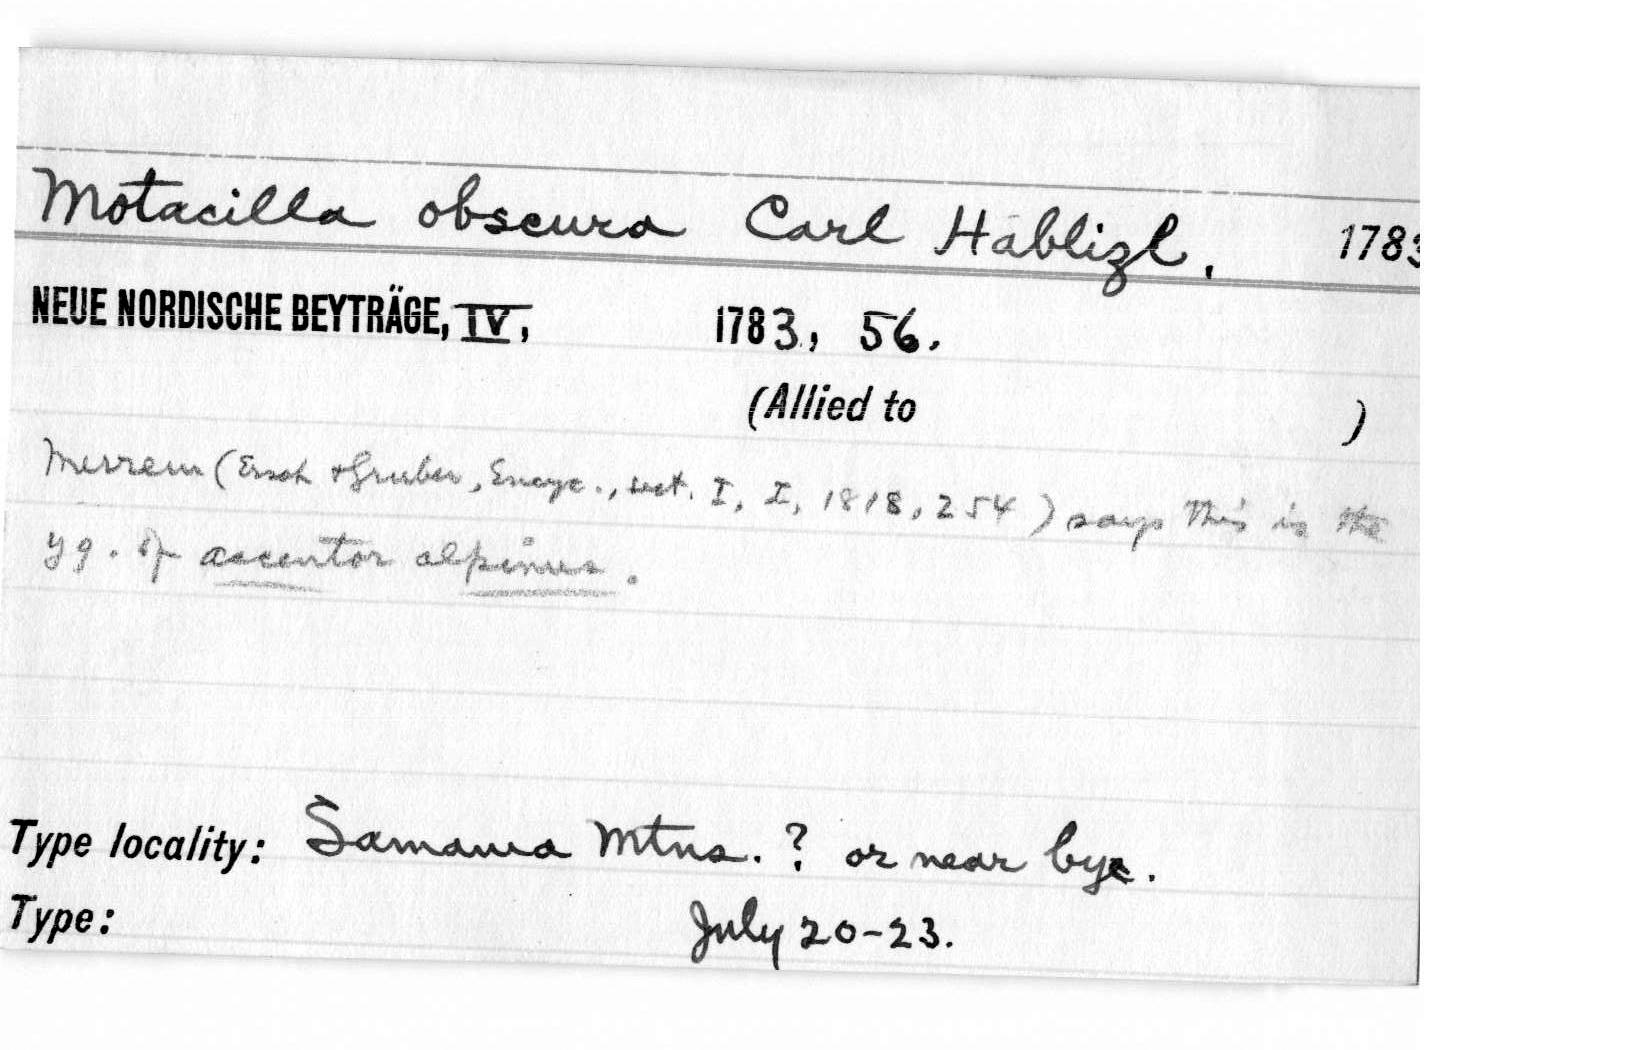 Motacilla obscura Carl Hablizl, 1783
NEUE NORDISCHE BEYTRÄGE, IV, 1783, 56.
(Allied to )
Merrem (Ersch & Gruber, Encyc., sect. I, I, 1818, 254) says this is the
yg. of accentor alpinus.
Type locality: Samama Mtns. ? or near bye.
Type: July 20-23.